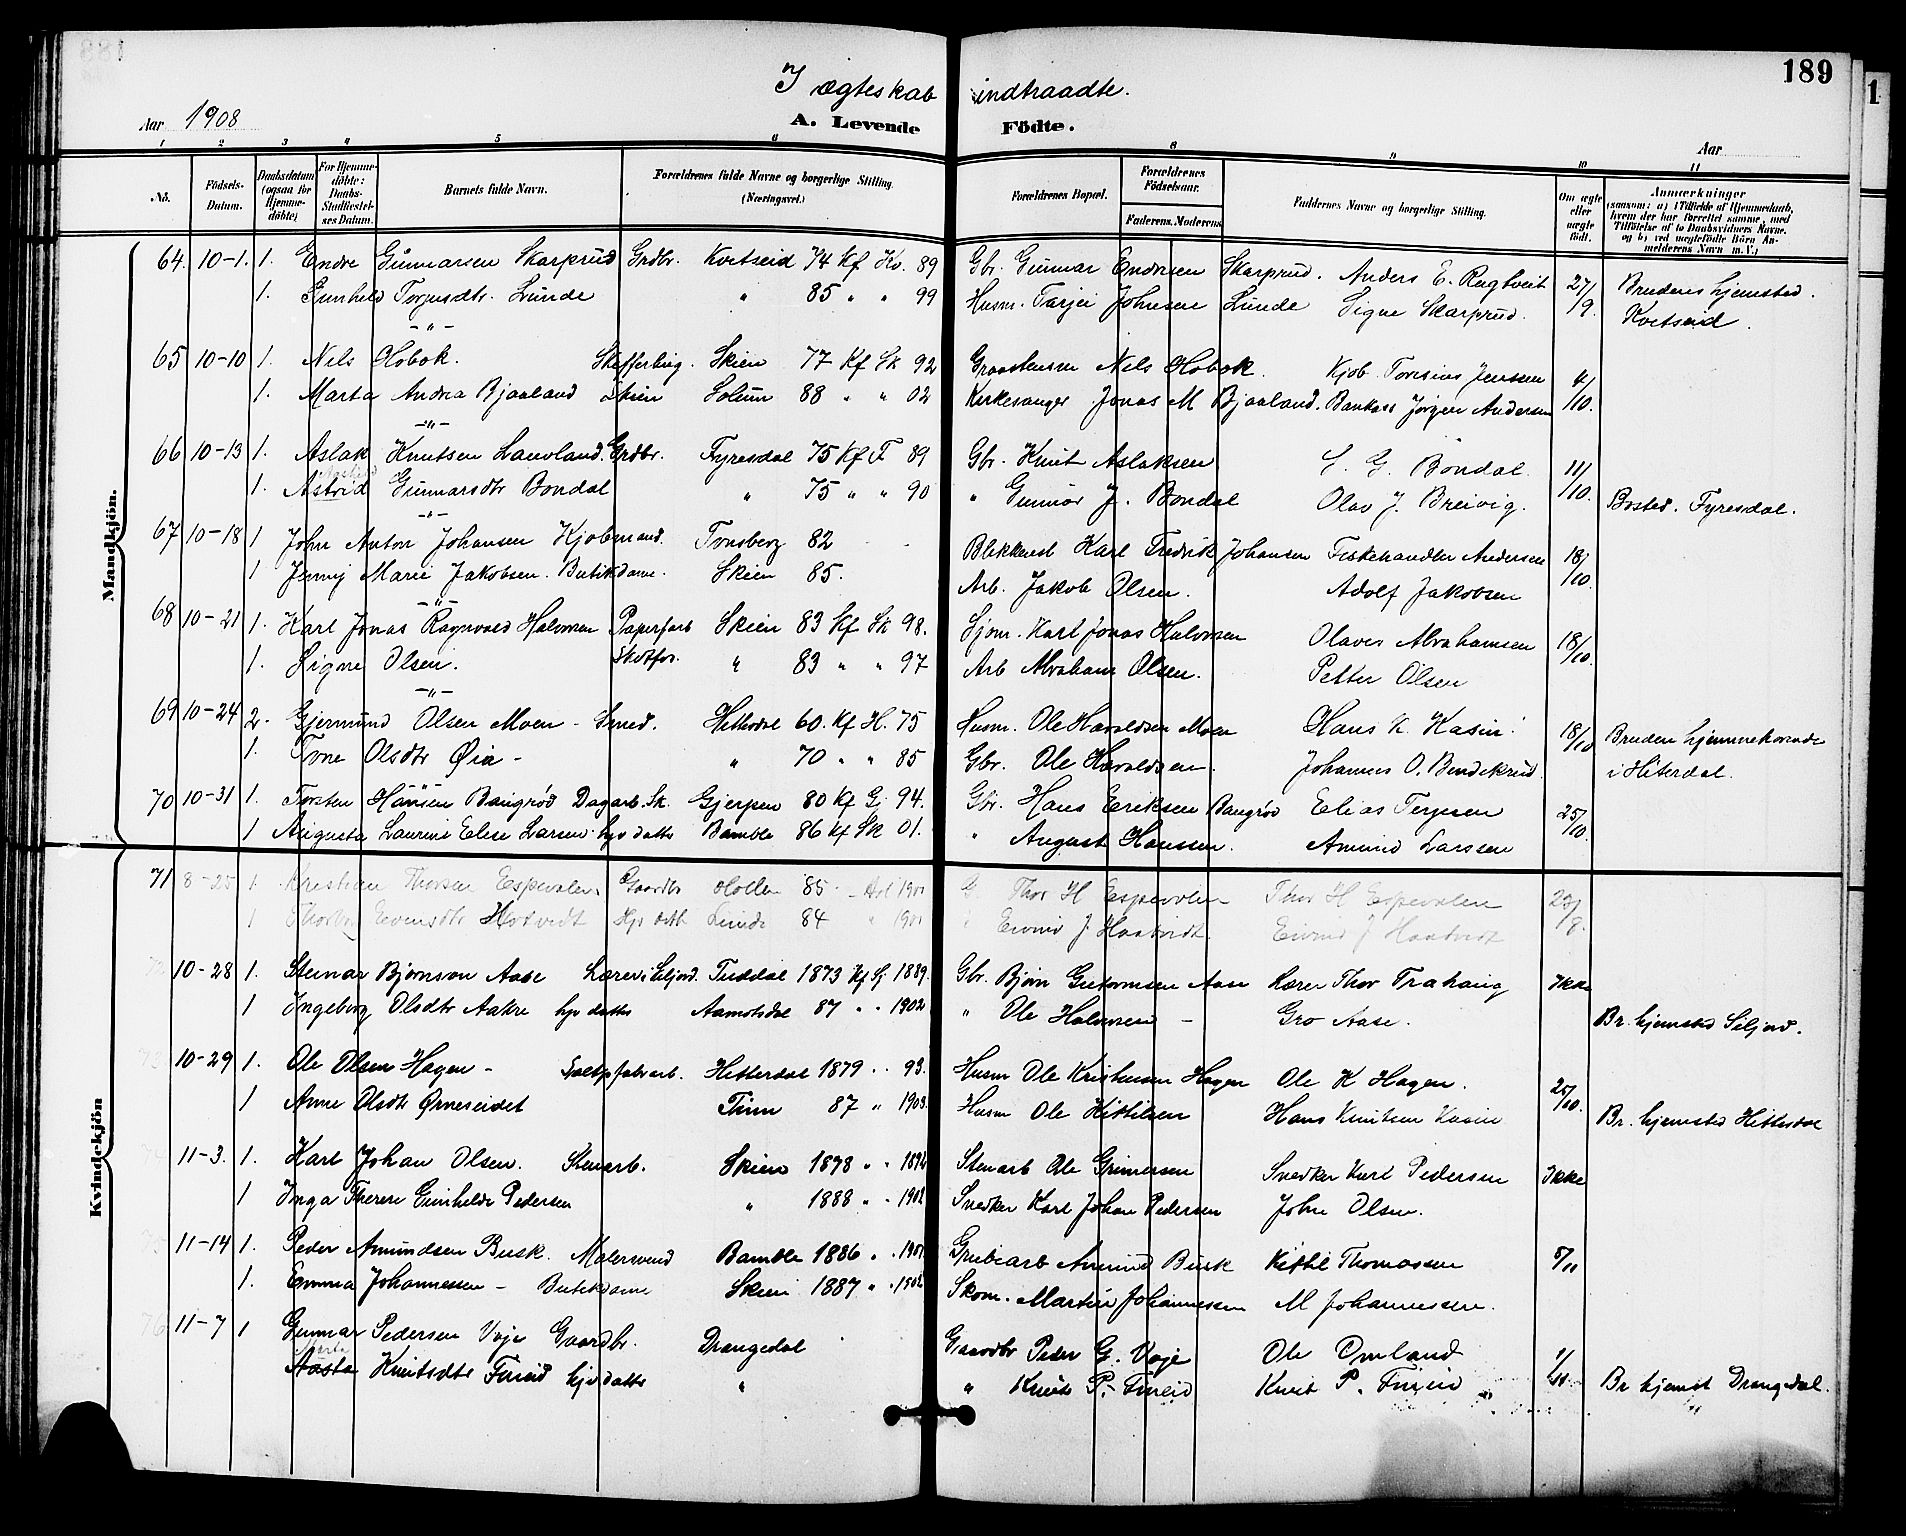 189
1
I ægteskab indtraadte.
Aar 1908
A. Levende Födte.
Aar
1 2 3 4 5 6 8 9 10 11
No. Födsels-Datum. Daabsdatum (ogsaa for Hjemme-döbte) For Hjemme-döbte: Daabs-Stadfæstel-ses Datum. Barnets fulde Navn. Forældrenes fulde Navne og borgerlige Stilling. (Næringsvei.) Forældrenes Bopæl. Forældrenes Födselsaar. Faderens. Moderens. Faddernes Navne og borgerlige Stilling. Om ægte eller uægte födt. Anmærkninger (saasom: a) i Tilfælde af Hjemmedaab, hvem der har forrettet samme, med Tilföielse af to Daabsvidners Navne. og b) ved uægtefödte Börn An-melderens Navn m. V.)
Mandkjön.
64. 10-1. 1. Endre Gunnarsen Skarprud Grdbr. Kvitseid 74 Kf Kv. 89 Gbr. Gunnar Endresen Skarprud. Anders E. Rugtveit 27/9 Brudens hjemsted.
1. Gunhild Torjusdtr. Lunde " 85 " " 99 Husm. Tarjei Johnsen Lunde Signe Skarprud. Kvitseid.
-"-
65 10-10 1. Nils Hobok. Skien 77 Kf Sk 92 Nils Hobok. Kjøb. Jenssen 4/10.
1. Marta Andrea Bjaaland Skien Solum 88 " " 02 Kirkesanger Jonas M Bjaaland. Jørgen Andersen
-"-
66 10-13 1. Aslak Knutsen Lauvland. Grdbr. Fyresdal 75 Kf F 89 Gbr. Knut Aslaksen G. Bondal 11/10.
1. Astrid Gunnarsdtr Bondal " 75 " " 90 " Gunnar J. Bondal Olav J. Breivig. Bosted. Fyresdal.
-"-
67 10-18 1 John Anton Johansen Kjøbmand. Tønsberg 82 - - Karl Fredrik Johansen Fiskehandler Andersen 18/10.
1 Jenny Marie Jakobsen. Butikdame. Skien 85. Arb. Jakob Olsen. Adolf Jakobsen
-"-
68 10-21 1. Karl Jonas Ragnvald Halvorsen Papirfarb Skien 83 Kf Sk 98. Sjøm. Karl Jonas Halvorsen Olaves Abrahamsen 18/10.
1. Signe Olsen. Skotfos. " 83 " " 97 Arb Abraham Olsen. Petter Olsen
-"-
69 10-24 2. Gjermund Olsen Moen - Smed. Hitterdal 60. Kf H. 75 Husm. Ole Haraldsen Moen Hans K. Kasin. 18/10 Bruden hjemmehørende
1. Tone Olsdtr Øia - " 70 " " 85 Gbr. Ole Haraldsen. Johannes O. i Hiterdal.
-"-
70 10-31 1. Torsten Hansen Bangrød Dagarb. Sk. Gjerpen 80 Kf Gj 94. Gbr. Hans Eriksen Bangrød Elias Terjesen 25/10.
1 Augusta Laurine Elise Larsen hjv datter Bamble 86 Kf Sk 01. " August Hanssen. Amund Larssen
Kvindekjön
71 8-25 1. Kristian Thorsen Espevalen. Gaardbr Holla 85 Thor H Espevalen Thor H Espevalen 23/8.
1 Eivensdtr Hotvedt Hjv datt Lunde 84 " 190 Eivind J Haatvedt. Eivind J Haatvedt
72 10-28 1. Steinar Bjørnson Aase Lærer i Seljord. Tuddal 1873 Kf Sj 1889. Gbr. Bjørn Guttormsen Aase Lærer Thor Trahaug Ikke
1 Ingeborg Olsdtr Aakre hjv datter Aamotsdal 87 " " 1902 " Ole Halvorsen - Gro Aase. Br. hjemsted Seljord.
73 10-29 1. Ole Olsen Hagen - Hitterdal 1879 " " 93. Husm Ole Kristensen Hagen Ole K Hagen. 25/10.
1 Anne Olsdtr Ørneseidet Tinn 87 " 1903. Husm Ole Kittilsen Hans Knutsen Kasin Br. hjemsted Hitterdal
74 11-3. 1. Karl Johan Olsen. Stenarb. Skien 1878 " " 1892 Stenarb Ole Gunnersen Snedker Karl Pedersen Ikke
1 Inga Therese Gunhilde Pedersen " 1888 " " 1902 Snedker Karl Johan Pedersen John Olsen.
75 11-14 1. Peder Amundsen Busk. Malersvend Bamble 1886 " " 1901 Grubearb Amund Busk Kittil Thomassen 5/11
1. Emma Johannessen - Butikdame Skien 1887 " " 1902 Skom. Martin Johannessen M Johannessen.
76 11-7 1 Gunnar Pedersen Voje Gaardbr. Drangedal Gaardbr Peder G. Voje Ole Omland 1/11
Marta
Aasta Knutsdtr Fineid hjv datter " " Knut P. Fineid Knut P. Fineid Br hjemst Drangedal.